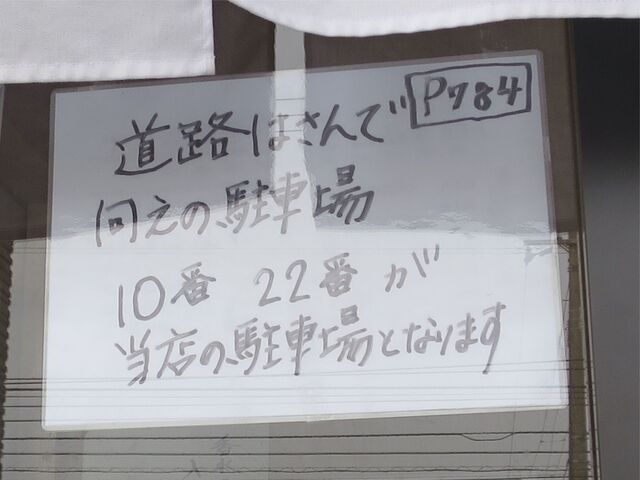 P784
道路はさんで
向えの駐車場
10番 22番が
当店の駐車場となります